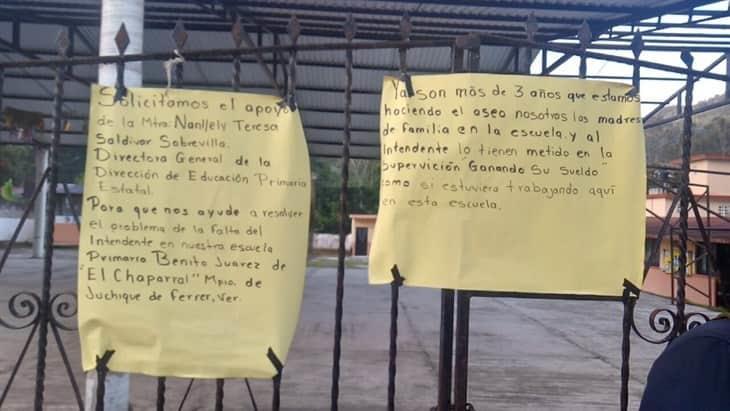 Solicitamos el apoyo
de la Mtra. Nanllely Teresa
Saldivar Sobrevilla.
Directora General de la
Dirección de Educación Primaria
Estatal.
Para que nos ayude a resolver
el problema de la falta del
Intendente en nuestra escuela
Primaria Benito Juarez de
"El Chaparral" Mpio. de
Juchique de Ferrer, Ver.
Ya son más de 3 años que estamos
haciendo el aseo nosotros las madres
de familia en la escuela. y al
Intendente lo tienen metido en la
Supervición "Ganando Su Sueldo"
como si estuviera trabajando aquí
en esta escuela.